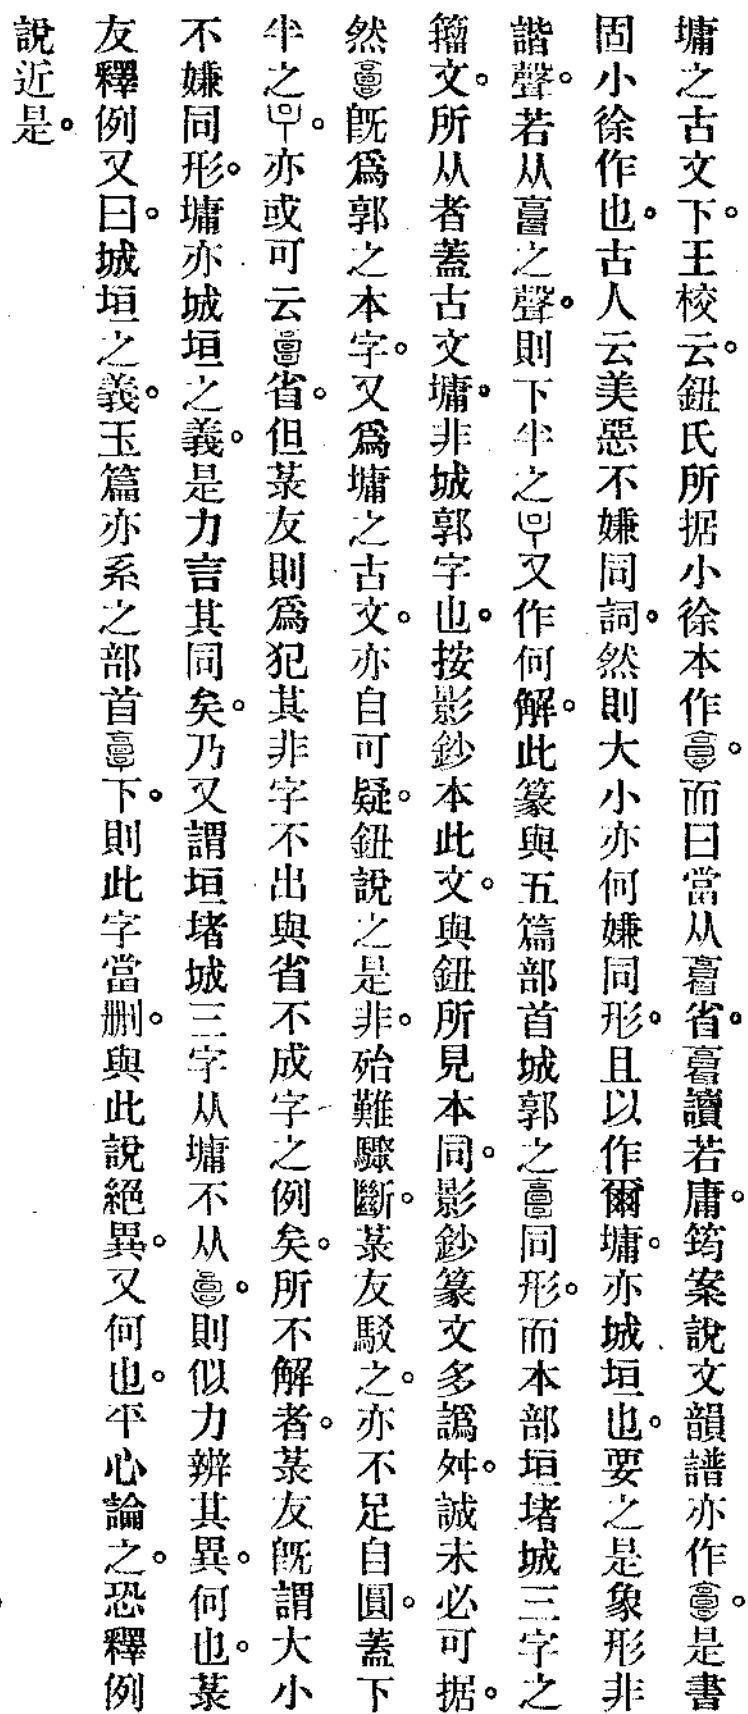 墉之古文下。王校云。鈕氏所据小徐本作𩫖。而曰當从𩫏省。𩫏讀若庸。筠案說文韻譜亦作𩫖。是書
固小徐作也。古人云美惡不嫌同詞。然則大小亦何嫌同形。且以作爾墉。亦城垣也。要之是象形非
諧聲。若从𩫏之聲。則下半之又作何解。此篆與五篇部首城郭之𩫖同形。而本部垣堵城三字之
籀文。所从者蓋古文墉。非城郭字也。按影鈔本此文。與鈕所見本同。影鈔篆文多譌舛。誠未必可据。
然𩫖旣爲郭之本字。又爲墉之古文。亦自可疑。鈕說之是非。殆難驟斷。菉友駁之。亦不足自圓。蓋下
半之。亦或可云𩫖省。但菉友則爲犯其非字不出與省不成字之例矣。所不解者。菉友旣謂大小
不嫌同形。墉亦城垣之義。是力言其同矣。乃又謂垣堵城三字从墉不从𩫖。則似力辨其異。何也。菉
友釋例又曰。城垣之義。玉篇亦系之部首𩫖下。則此字當删。與此說絕異。又何也。平心論之。恐釋例
說近是。